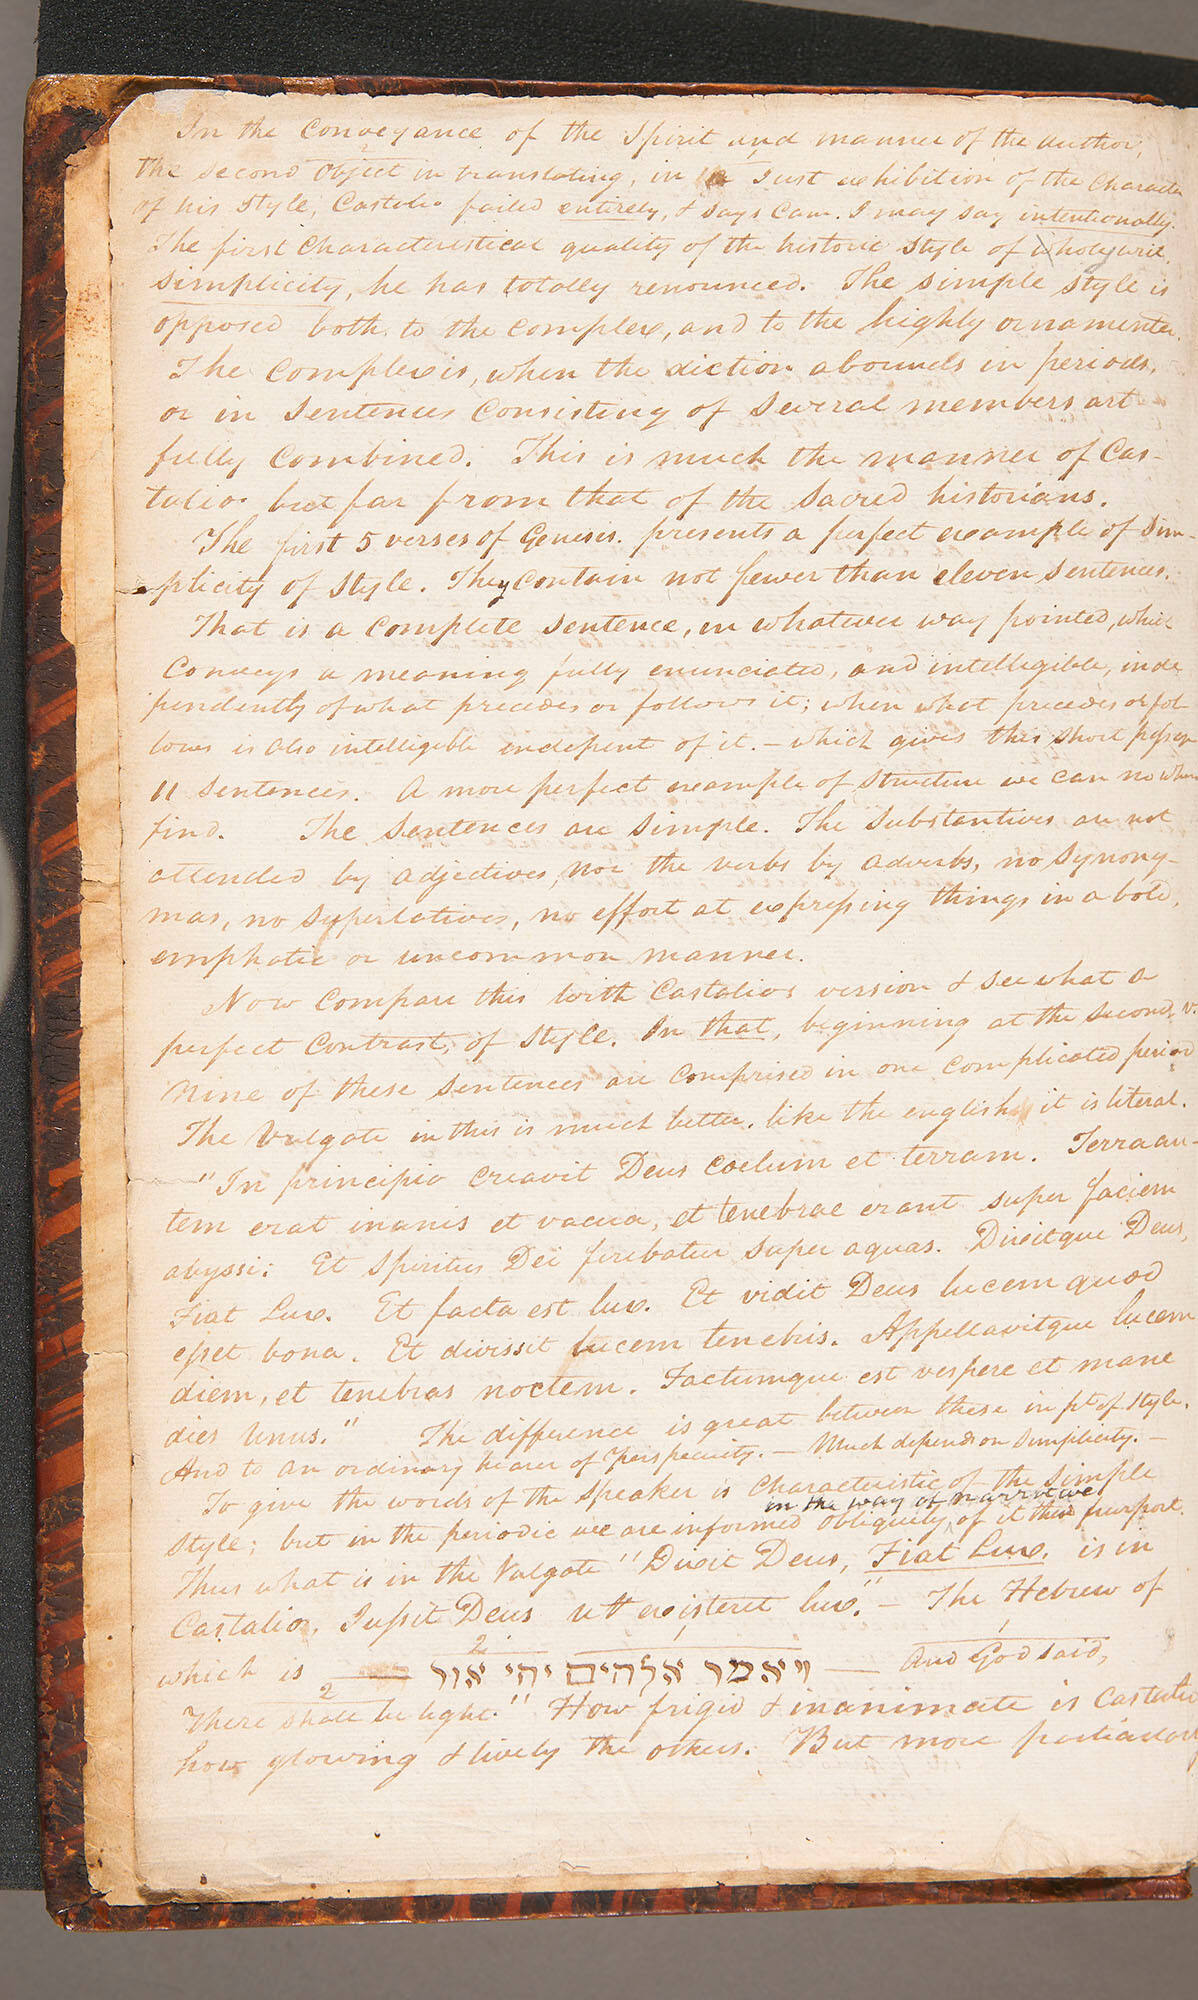 In the conveyance of the Spirit and manner of the author,
the second object in translating, in a Just exhibition of the Character
of his Style, Castalio failed entirely, & says Cam. I may say intentionally.
The first Characteristical quality of the historic style of holy writ,
simplicity, he has totally renounced. The simple style is
opposed both to the complex, and to the highly ornamented.
The complex is, when the diction abounds in periods,
or in sentences consisting of several members art
fully combined. This is much the manner of Cas-
talio but far from that of the sacred historians.
The first 5 verses of Genesis. presents a perfect example of sim-
plicity of style. They contain not fewer than eleven sentences.
That is a complete sentence, in whatever way pointed, which
conveys a meaning fully enunciated, and intelligible, inde
pendently of what precedes or follows it; when what precedes or fol
lows is also intelligible indepent of it. – which gives this short passage
11 sentences. A more perfect example of structure we can no where
find. The sentences are simple. The substantives are not
attended by adjectives, nor the verbs by adverbs, no synony-
mas, no superlatives, no effort at expressing things in a bold,
emphatic or uncommon manner.
Now compare this with Castalios version & see what a
perfect contrast, of style. In that, beginning at the second v.
nine of these sentences are comprised in one complicated period
The Vulgate in this is much better. like the english it is literal.
"In principio creavit Deus coelum et terram. Terra au-
tem erat inanis et vacua, et tenebrae erant super faciem
abyssi: Et Spiritus Dei ferebatur super aquas. Dixitque Deus,
Fiat Lux. Et facta est lux. Et vidit Deus lucem quod
esset bona. Et divissit lucem tenebris. Appellavitque lucem
diem, et tenebras noctem. Factumque est vespere et mane
dies Unus." The difference is great between these in pt of style.
And to an ordinary hearer of perspecuity. – Much depends on simplicity. –
To give the words of the speaker is characteristic of the simple
in the way of narrative
style; but in the periodic we are informed obliquely of it their purport.
Thus what is in the Vulgate "Dixit Deus, Fiat Lux. is in
Castalio, Jussit Deus ut existeret lux." – The Hebrew of
which is — ויאמר אלהים יהי אור — And God said,
2
There shall be light." How frigid & inanimate is Castalio
how glowing & lively the others. But more particularly